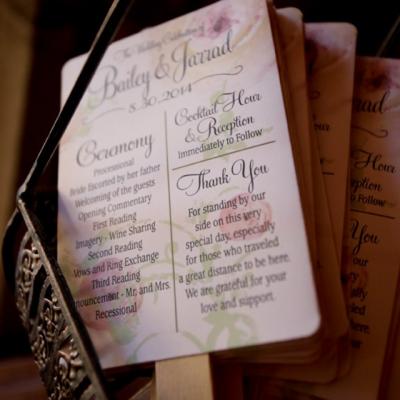 The Wedding Celebration of
Bailey & Jarrad
8.30.2014
Ceremony
Processional
Bride Escorted by her father
Welcoming of the guests
Opening Commentary
First Reading
Imagery - Wine Sharing
Second Reading
Vows and Ring Exchange
Third Reading
nouncement - Mr. and Mrs.
Recessional
Cocktail Hour
& Reception
Immediately to Follow
Thank You
For standing by our
side on this very
special day, especially
for those who traveled
a great distance to be here.
We are grateful for your
love and support.
Jarrad
Hour
Reception
to Follow
You
by our
very
especially
traveled
to be here.
for your
support.